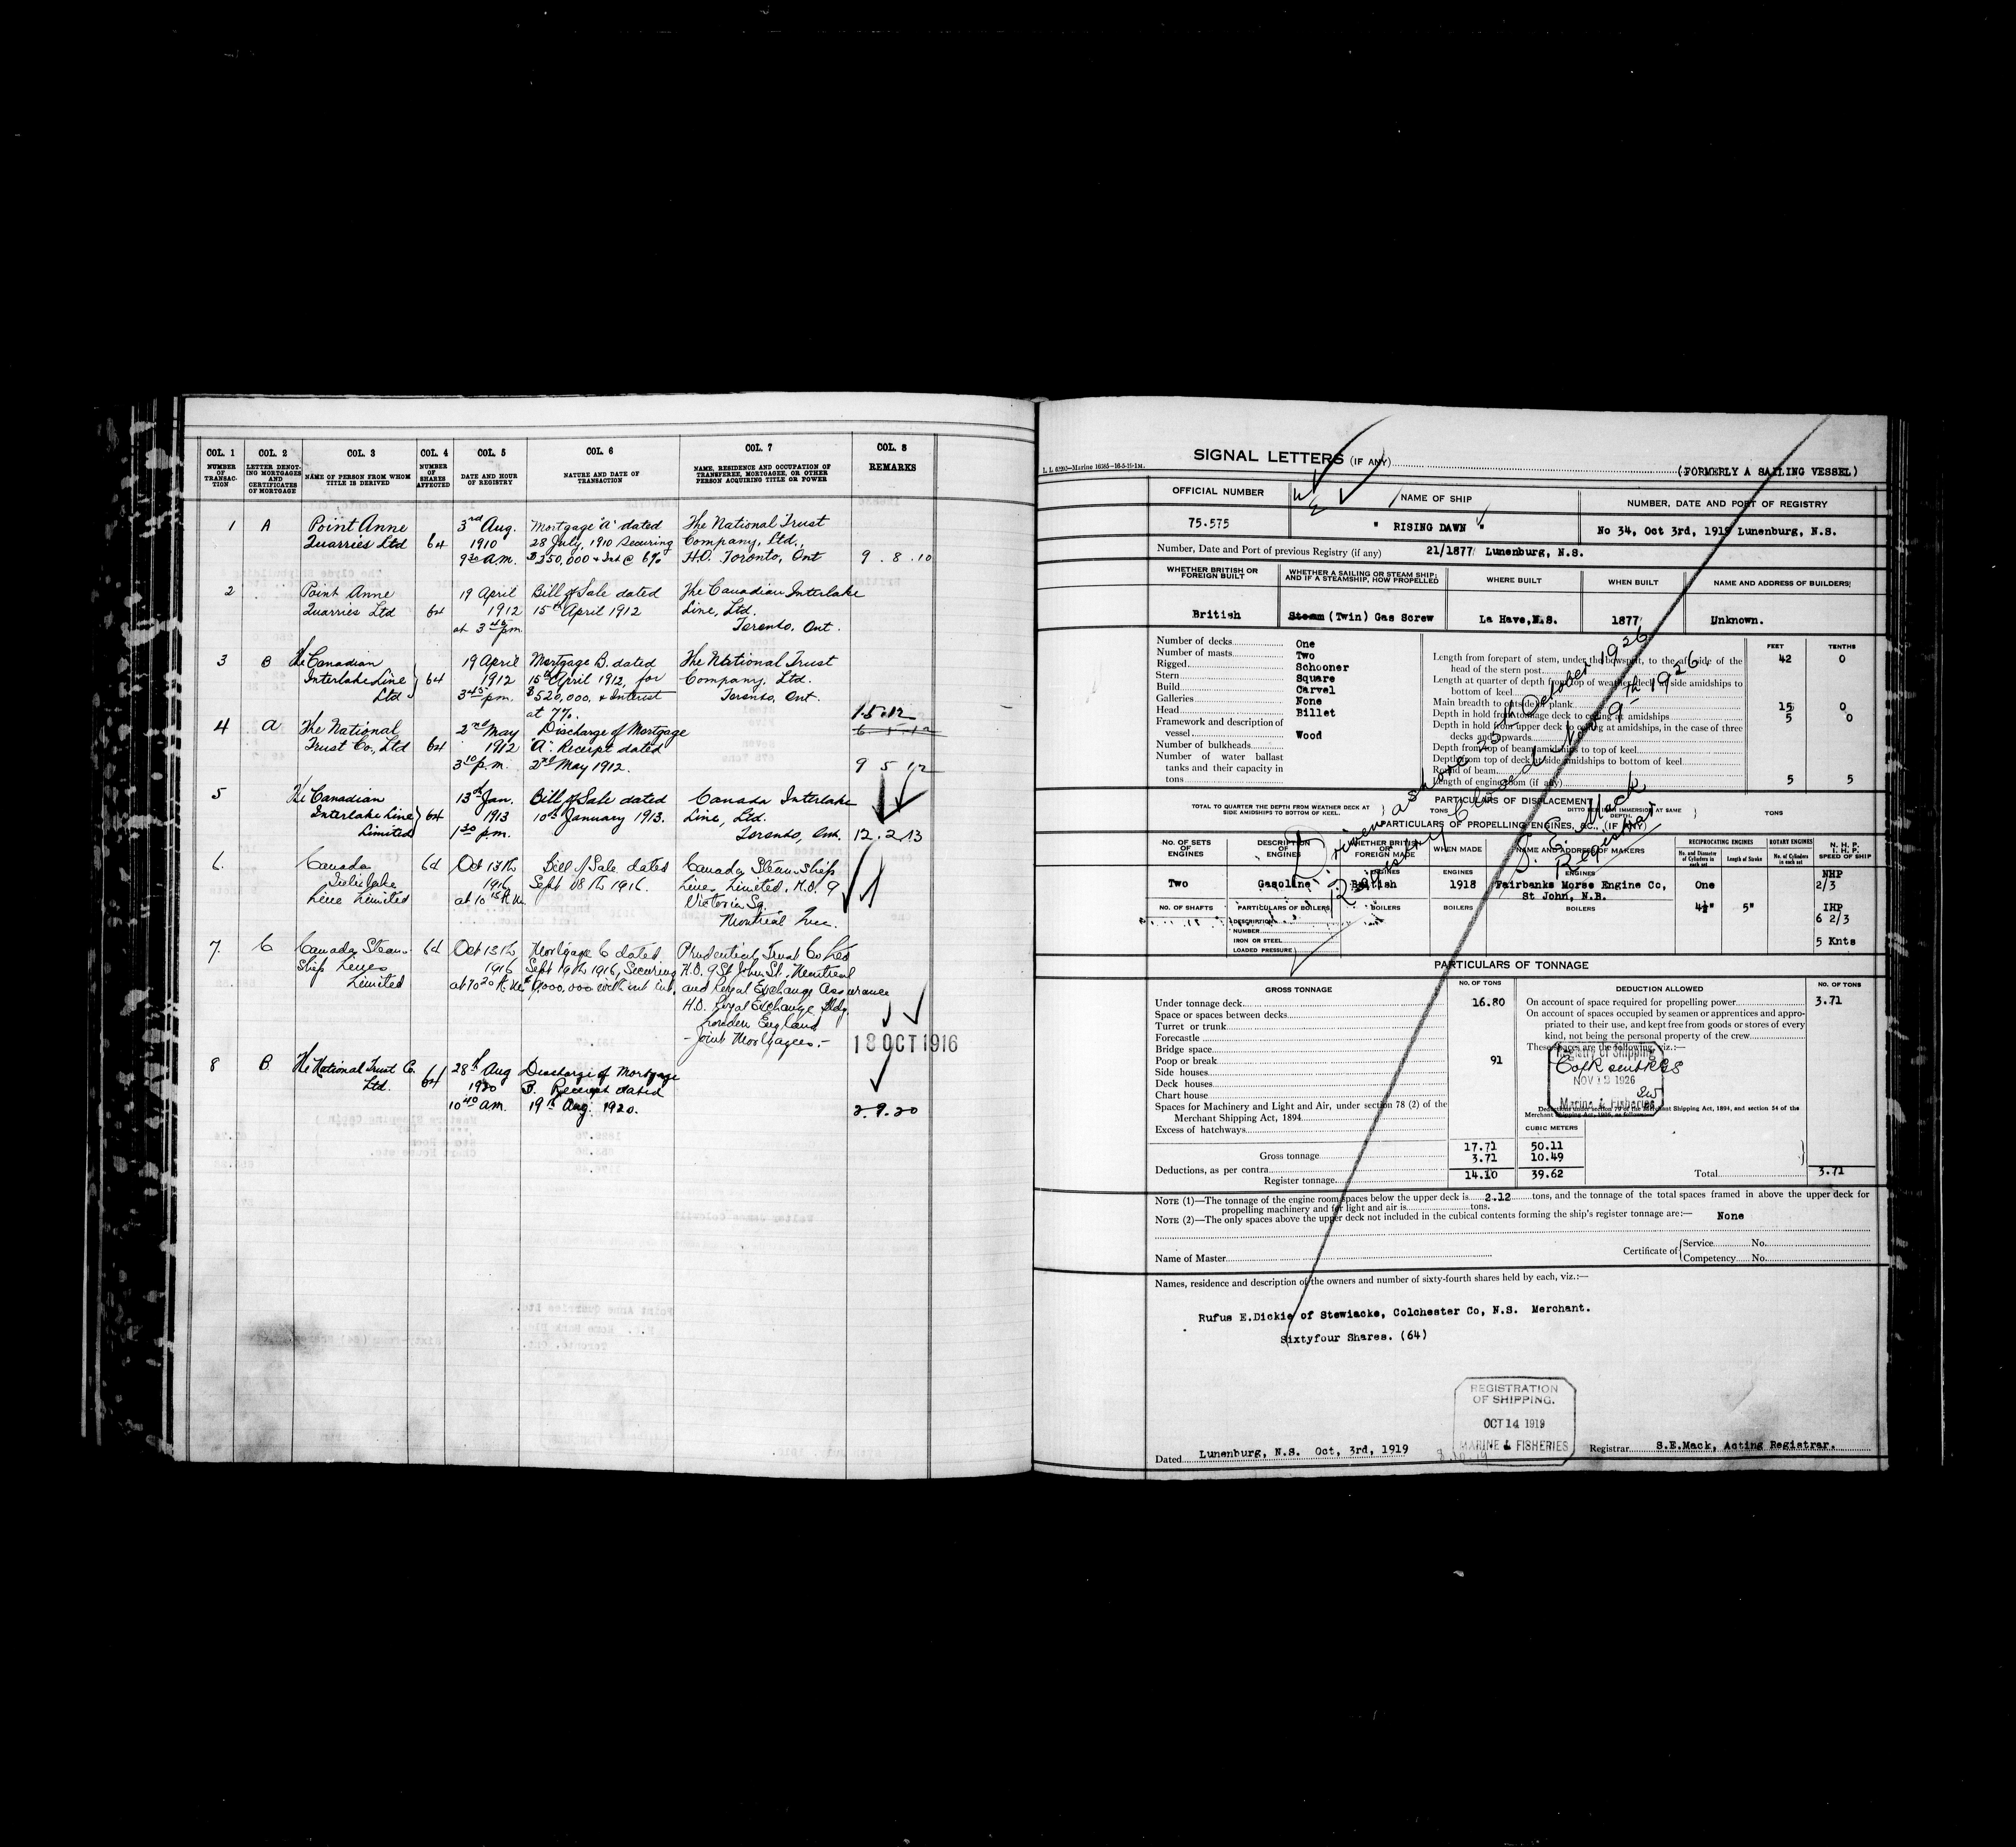 COL. 1 COL. 2 COL. 3 COL. 4 COL. 5 COL. 6 COL. 7 COL. 8
NUMBER OF TRANSAC-TION
LETTER DENOT-ING MORTGAGES AND CERTIFICATES OF MORTGAGE
NAME OF PERSON FROM WHOM TITLE IS DERIVED
NUMBER OF SHARES AFFECTED
DATE AND HOUR OF REGISTRY
NATURE AND DATE OF TRANSACTION
NAME, RESIDENCE AND OCCUPATION OF TRANSFEREE, MORTGAGEE, OR OTHER PERSON ACQUIRING TITLE OR POWER
REMARKS
1 A Point Anne 3rd Aug. Mortgage 'A' dated The National Trust
Quarries Ltd 64 1910 28 July, 1910 securing Company, Ltd.,
9 30 a.m. $350,000 + Int @ 6% H.O. Toronto, Ont 9 . 8 . 10
2 Point Anne 19 April Bill of Sale dated The Canadian Interlake
Quarries Ltd 64 1912 15th April 1912 Line, Ltd.
at 3 40 pm. Toronto, Ont.
3 B The Canadian 19 April Mortgage B. dated The National Trust
Interlake Line 64 1912 15th April 1912, for Company, Ltd.
Ltd 3 45 pm. $520,000, + Interest Toronto, Ont.
at 7%. 1.5.12
4 A The National 2nd May Discharge of Mortgage
Trust Co., Ltd 64 1912 "A". Receipt dated
3 10 p.m. 2nd May 1912. 9 5 12
5 The Canadian 13th Jan. Bill of Sale dated Canada Interlake
Interlake Line 64 1913 10th January 1913. Line, Ltd.
Limited 1 30 p.m. Toronto, Ont. 12.2.13
6. Canada 64 Oct 13th Bill of Sale dated Canada Steam Ship
Interlake 1916 Sept 18th 1916. Lines Limited, H.O. 9
Line Limited at 10 15 A.M. Victoria Sq.
Montreal Que.
7. C Canada Steam- 64 Oct 13th Mortgage C dated Prudential Trust Co Ltd
Ship Lines 1916 Sept 19th 1916, Securing H.O. 9 St John St. Montreal
Limited at 10 20 A.M. with int and Royal Exchange Assurance
H.O. Royal Exchange Bldg.
London England
- Joint Mortgagees. - 18 OCT 1916
8 B The National Trust Co. 28th Aug Discharge of Mortgage
Ltd. 64 1920 B. Receipt dated
10 40 am. 19th Aug. 1920. 2.9.20
L L 6295—Marine 16585—16-5-19-1M.
SIGNAL LETTERS (IF ANY)
(FORMERLY A SAILING VESSEL)
OFFICIAL NUMBER NAME OF SHIP NUMBER, DATE AND PORT OF REGISTRY
75.575 " RISING DAWN " No 34, Oct 3rd, 1919 Lunenburg, N.S.
Number, Date and Port of previous Registry (if any) 21/1877 Lunenburg, N.S.
WHETHER BRITISH OR FOREIGN BUILT
WHETHER A SAILING OR STEAM SHIP; AND IF A STEAMSHIP, HOW PROPELLED
WHERE BUILT WHEN BUILT NAME AND ADDRESS OF BUILDERS
British Steam (Twin) Gas Screw La Have, N.S. 1877 Unknown.
Number of decks One
Number of masts Two
Rigged Schooner
Stern Square
Build Carvel
Galleries None
Head Billet
Framework and description of
vessel Wood
Number of bulkheads
Number of water ballast
tanks and their capacity in
tons
FEET TENTHS
Length from forepart of stem, under the bowsprit, to the aft side of the
head of the stern post 42 0
Length at quarter of depth from top of weather deck at side amidships to
bottom of keel
Main breadth to outside of plank 15 0
Depth in hold from tonnage deck to ceiling at amidships 5 0
Depth in hold from upper deck to ceiling at amidships, in the case of three
decks and upwards
Depth from top of beam amidships to top of keel
Depth from top of deck at side amidships to bottom of keel
Round of beam
Length of engine room (if any) 5 5
Driven ashore 25th October 1926
Registry Closed Nov 9th 1926.
S. E. Mack
Registrar
PARTICULARS OF DISPLACEMENT
TOTAL TO QUARTER THE DEPTH FROM WEATHER DECK AT SIDE AMIDSHIPS TO BOTTOM OF KEEL. TONS
DITTO PER INCH IMMERSION AT SAME DEPTH. TONS
PARTICULARS OF PROPELLING ENGINES, &C., (IF ANY)
NO. OF SETS OF ENGINES
DESCRIPTION OF ENGINES
WHETHER BRITISH OR FOREIGN MADE
WHEN MADE
NAME AND ADDRESS OF MAKERS
RECIPROCATING ENGINES ROTARY ENGINES
No. and Diameter of Cylinders in each set
Length of Stroke
No. of Cylinders in each set
N. H. P. I. H. P. SPEED OF SHIP
ENGINES ENGINES ENGINES NHP
Two Gasoline British 1918 Fairbanks Morse Engine Co, One 2/3
St John, N.B.
NO. OF SHAFTS PARTICULARS OF BOILERS BOILERS BOILERS BOILERS 4½" 5" IHP
6 2/3
DESCRIPTION
NUMBER
IRON OR STEEL
LOADED PRESSURE
5 Knts
PARTICULARS OF TONNAGE
GROSS TONNAGE NO. OF TONS DEDUCTION ALLOWED NO. OF TONS
Under tonnage deck 16.80
Space or spaces between decks
Turret or trunk
Forecastle
Bridge space
Poop or break 91
Side houses
Deck houses
Chart house
Spaces for Machinery and Light and Air, under section 78 (2) of the
Merchant Shipping Act, 1894
Excess of hatchways
Gross tonnage 17.71 50.11
Deductions, as per contra 3.71 10.49
Register tonnage 14.10 39.62
On account of space required for propelling power 3.71
On account of spaces occupied by seamen or apprentices and appro-
priated to their use, and kept free from goods or stores of every
kind, not being the personal property of the crew
These spaces are the following, viz.:—
Registry Of Shipping
NOV 13 1926
Marine & Fisheries
Deductions under section 79 of the Merchant Shipping Act, 1894, and section 54 of the
CUBIC METERS
Total 3.71
NOTE (1)—The tonnage of the engine room spaces below the upper deck is 2.12 tons, and the tonnage of the total spaces framed in above the upper deck for
propelling machinery and for light and air is tons.
NOTE (2)—The only spaces above the upper deck not included in the cubical contents forming the ship's register tonnage are:— None
Name of Master
Certificate of
Service No.
Competency No.
Names, residence and description of the owners and number of sixty-fourth shares held by each, viz.:—
Rufus E.Dickie of Stewiacke, Colchester Co, N.S. Merchant.
Sixtyfour Shares. (64)
REGISTRATION
OF SHIPPING.
OCT 14 1919
MARINE & FISHERIES
Dated Lunenburg, N.S. Oct, 3rd, 1919
Registrar S.E.Mack, Acting Registrar.